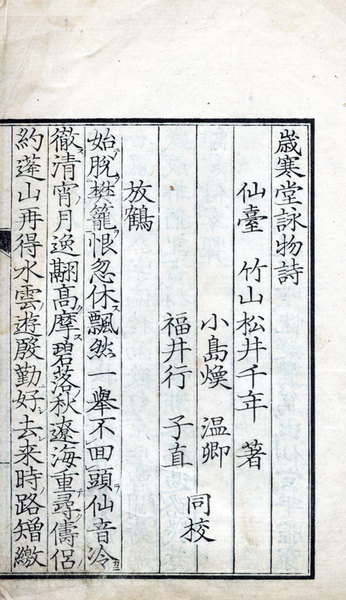 歳寒堂詠物詩
仙臺 竹山松井千年 著
小島煥 温卿
福井行 子直
同校
放鶴
始脫樊籠恨忽休飄然一舉不回頭仙音冷
徹清宵月逸翮高摩碧落秋遼海重尋儔侶
約蓬山再得水雲遊殷勤好去來時路矰繳